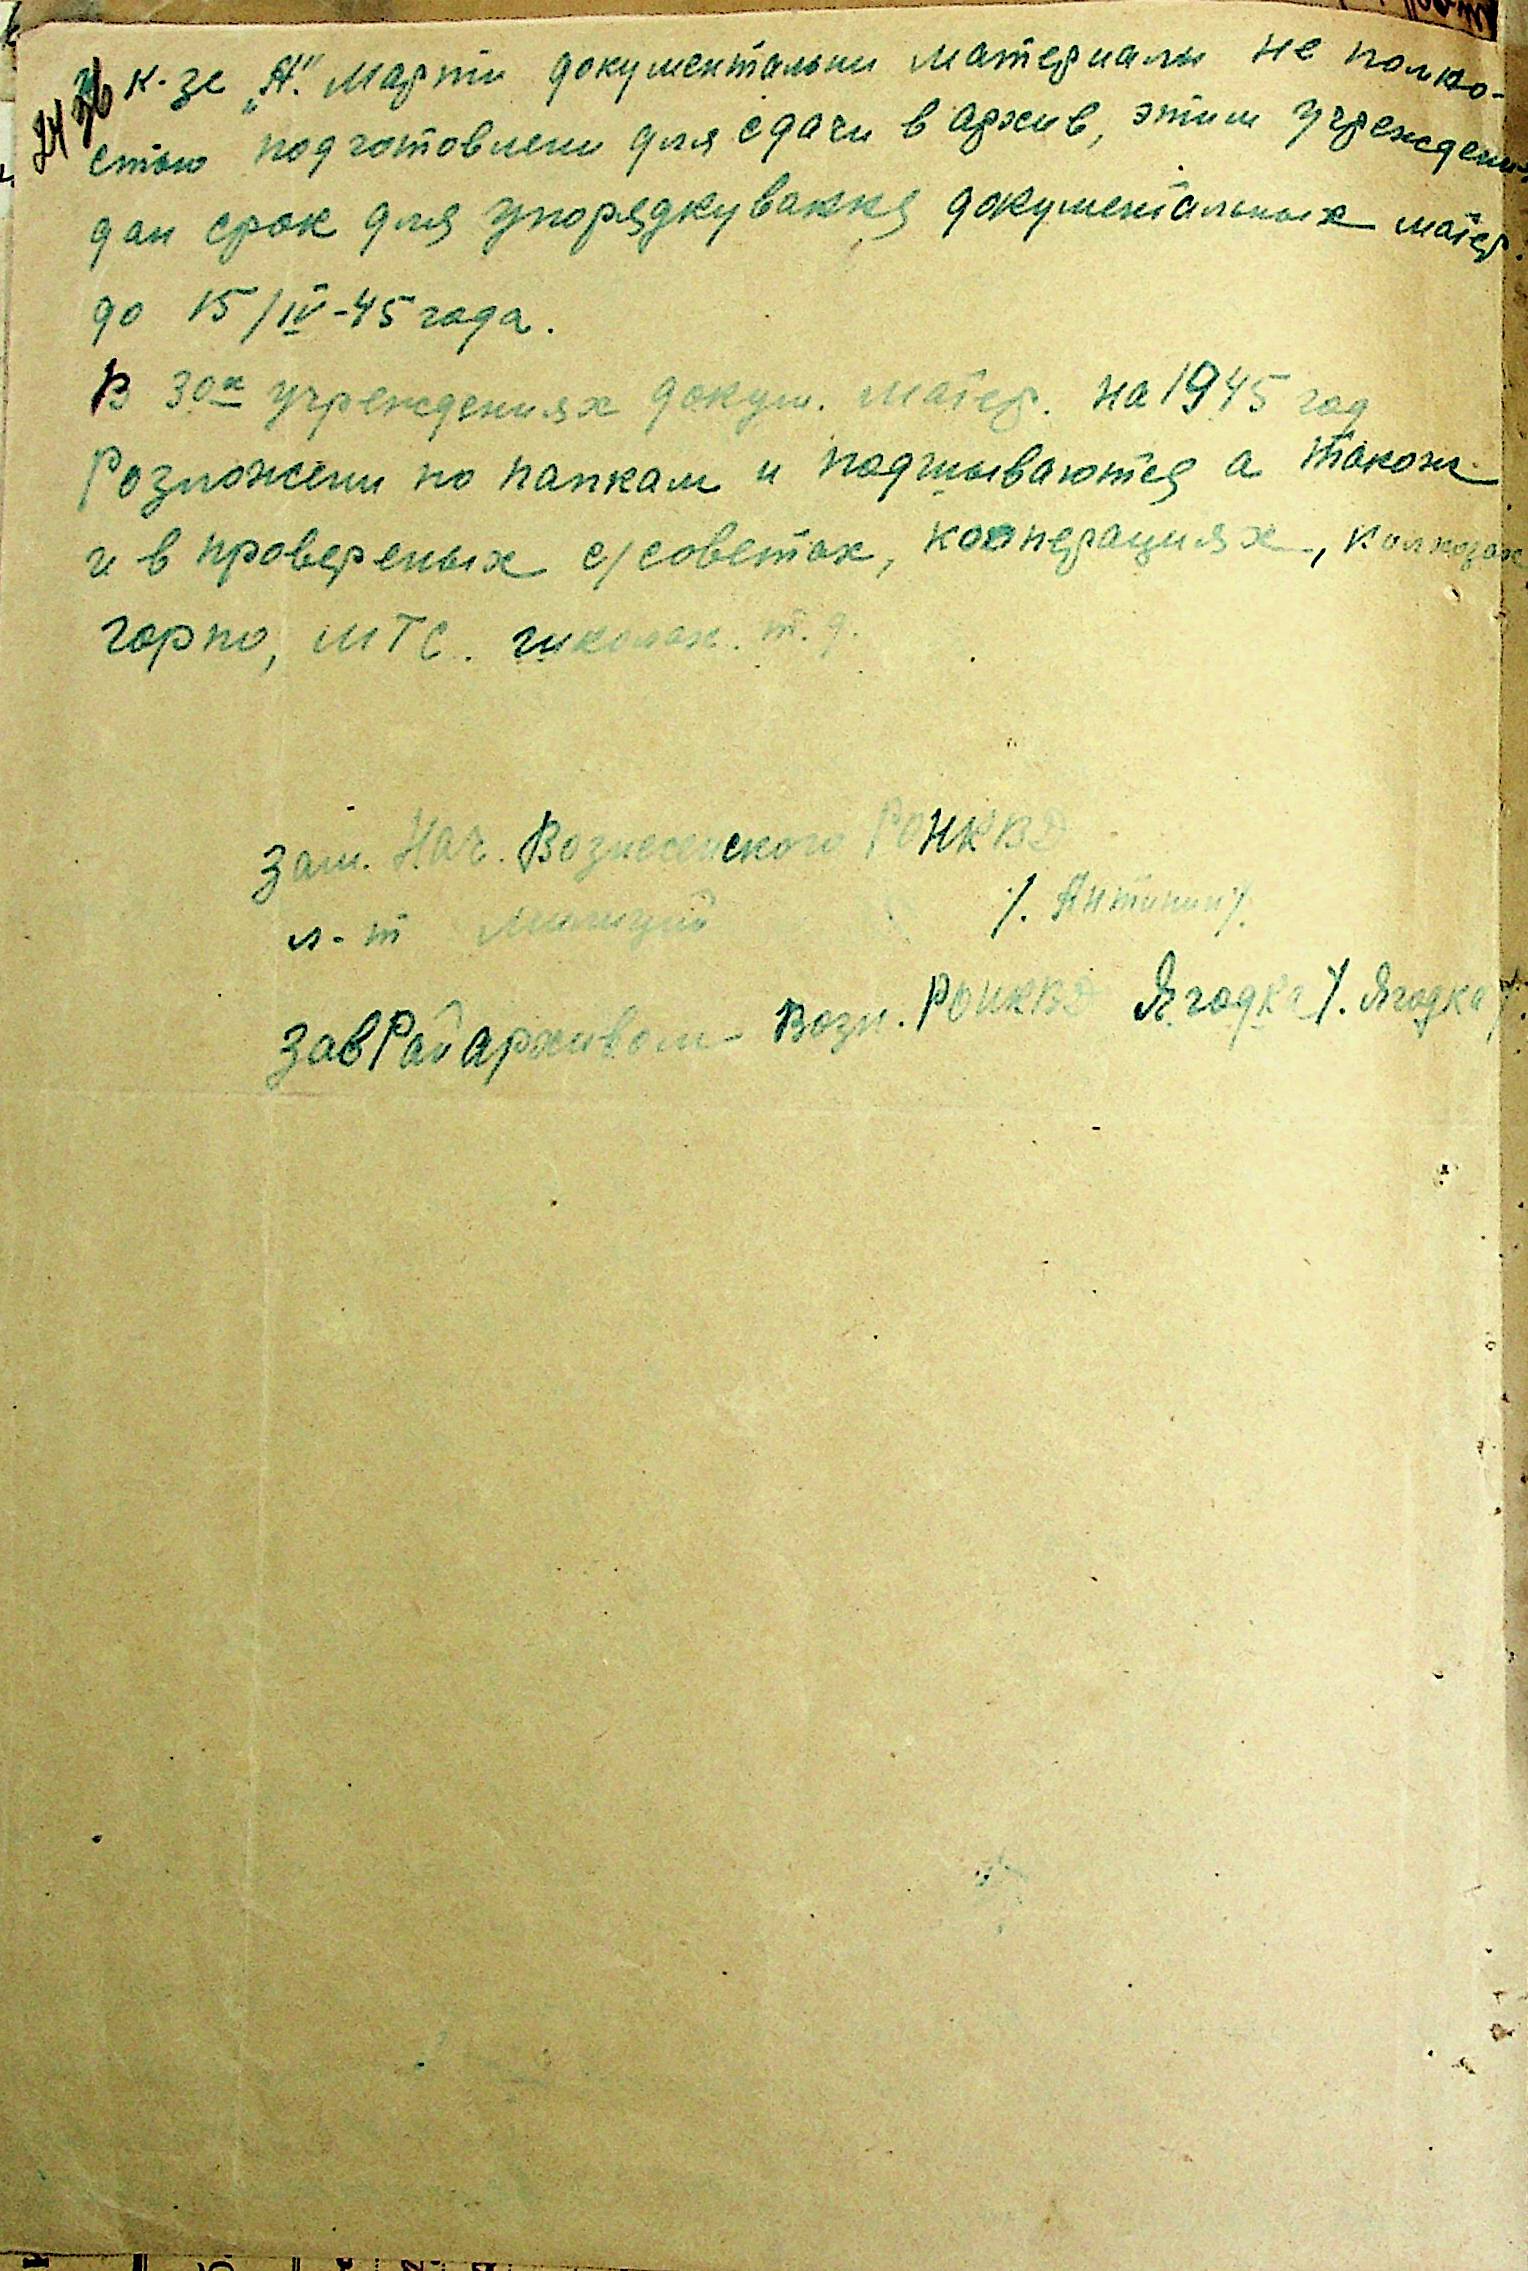 24 26
У к-зе „А." Марти документальни материалы не полно-
стью подготовлени для сдачи в архив, этим учреждени-
дан срок для упорядкування документальных матер.
до 15/IV-45 года.
В 30х учреждениях докум. матер. на 1945 год
Розложени по папкам и подшываются а також
и в провереных с/советах, коопперациях, колхозах
горпо, МТС. школах. т.д.
Зам. Нач. Вознесенского РОНКВД
л-т милиции /. Антипин/.
ЗавРайархивом Возн. РОНКВД Ягодка /. Ягодка/.